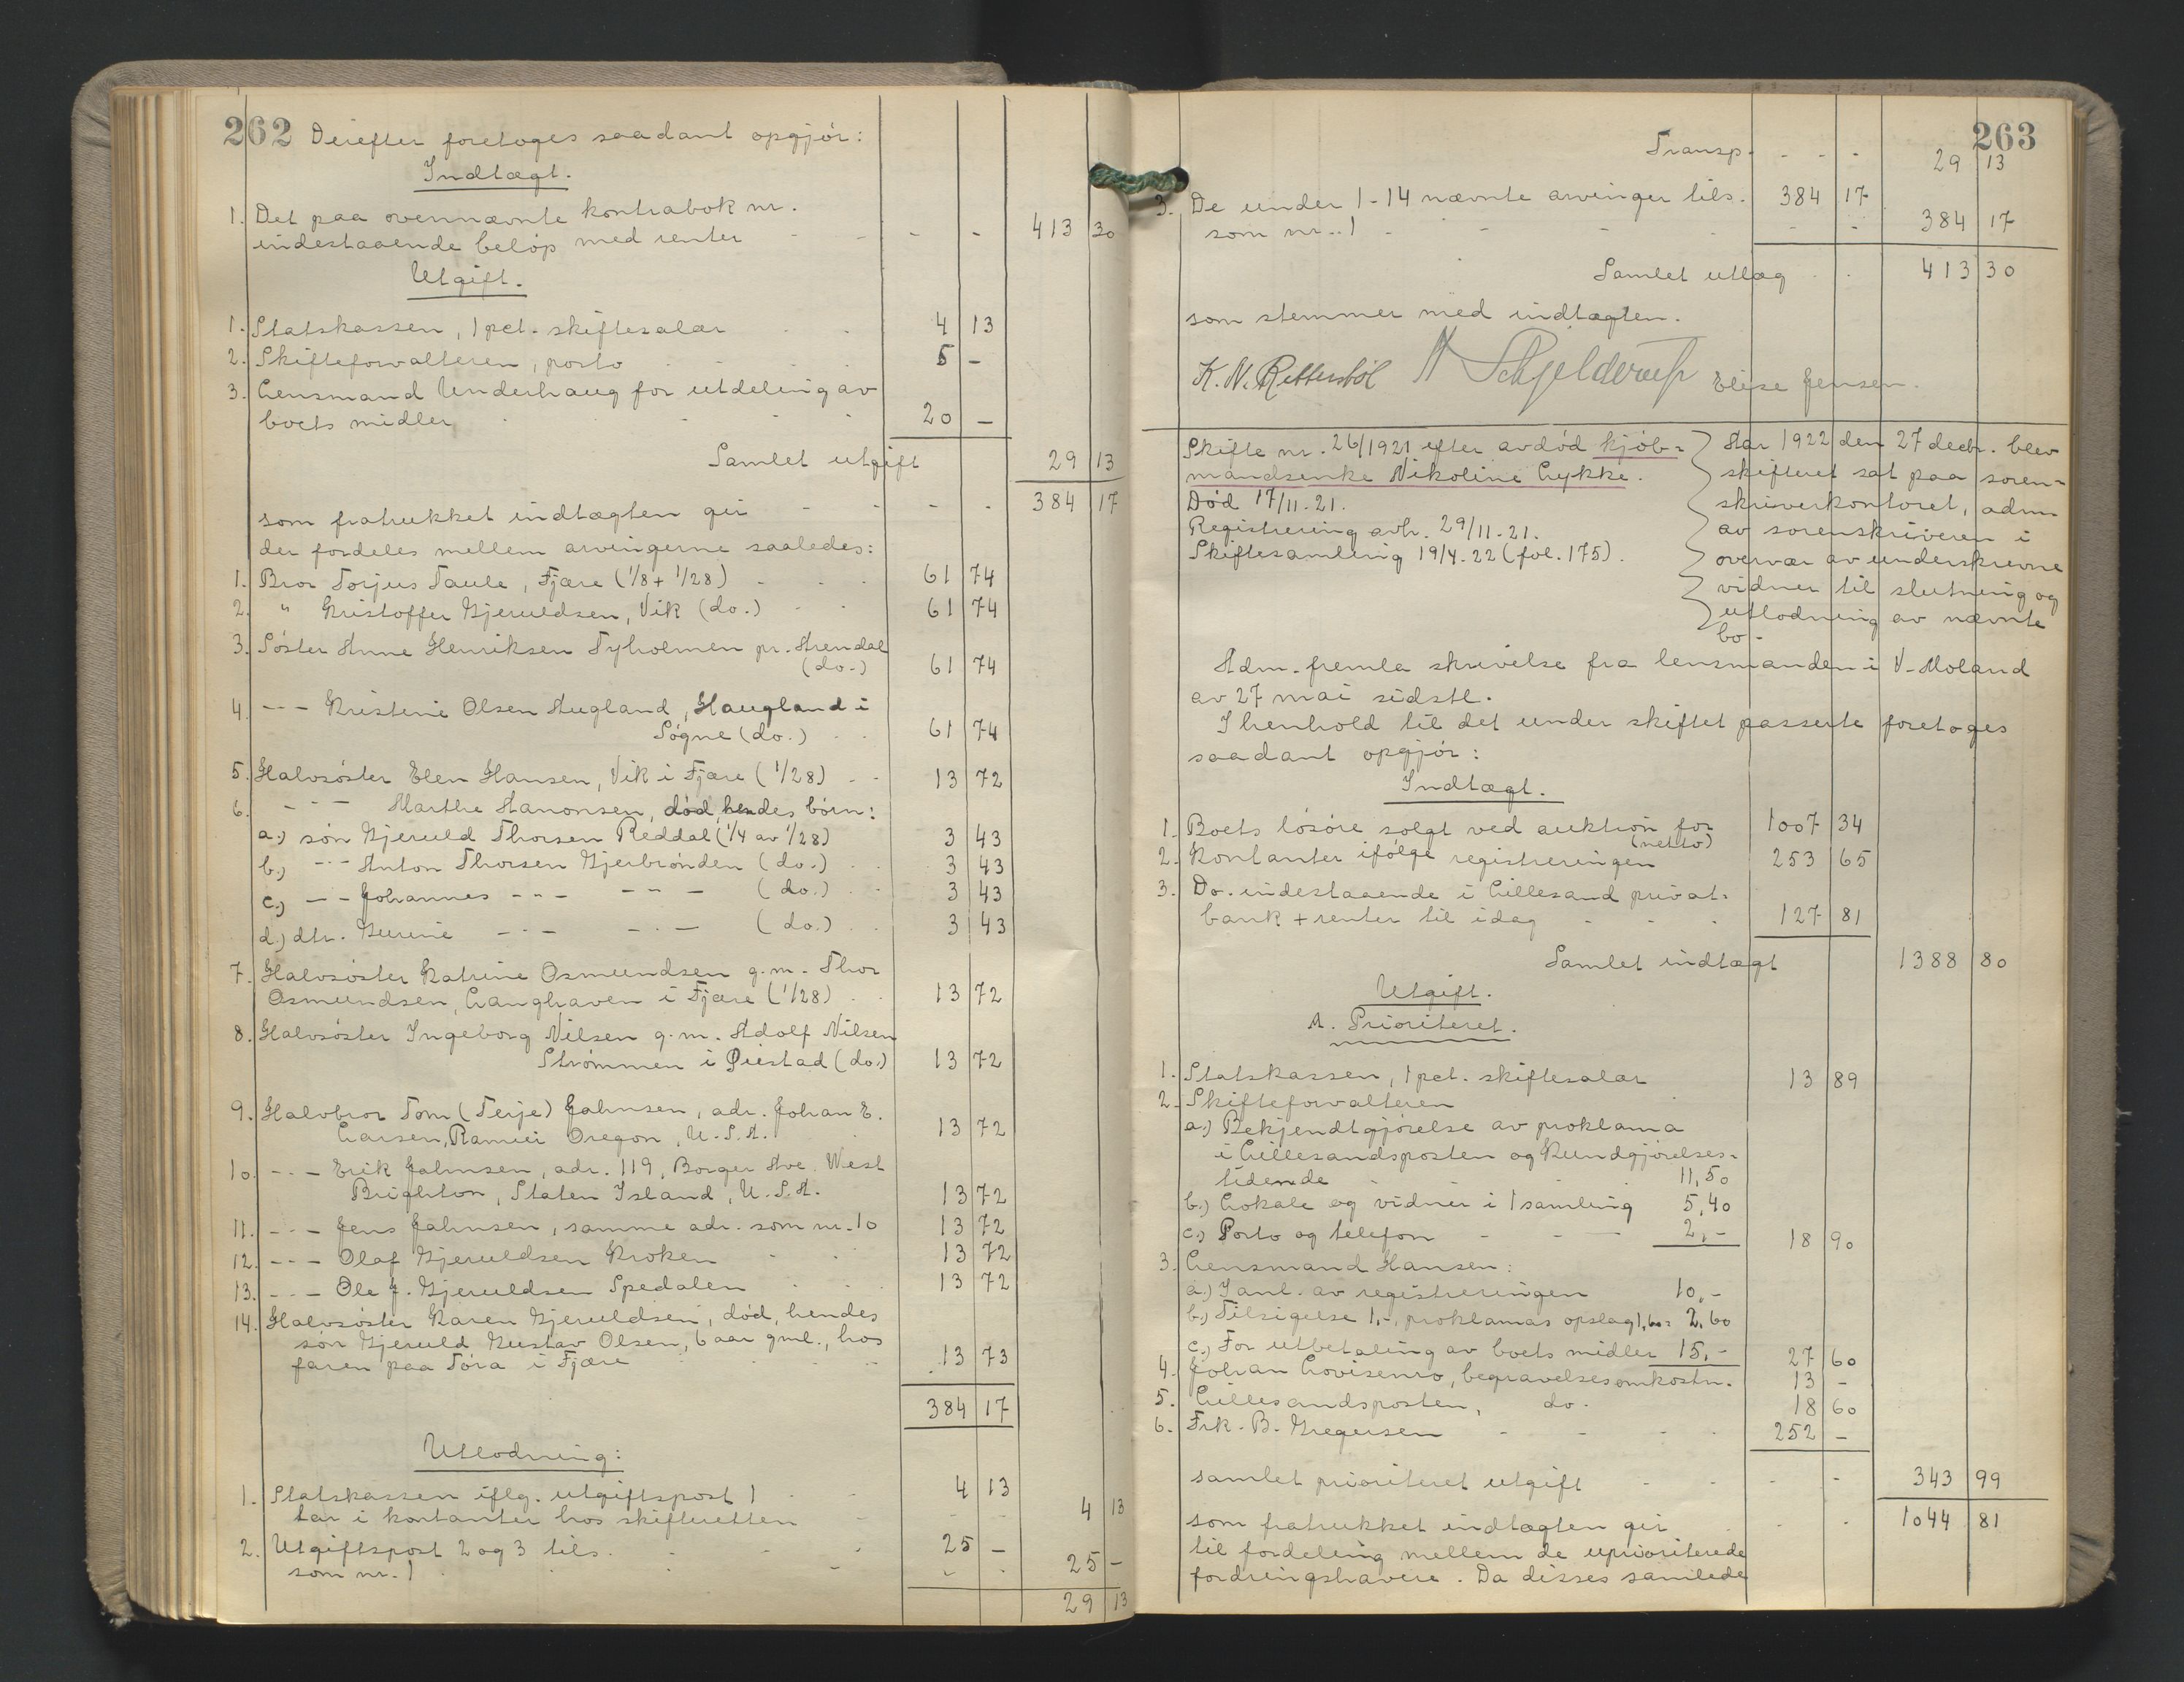 262 Derefter foretoges saadant opgjör:
Indtægt.
1. Det paa ovennævnte kontrabok nr.
indestaaende belöp med renter - - - 413 30
Utgift.
1. Statskassen, 1 pct. skiftesalær 4 13
2. Skifteforvalteren, porto 5 -
3. Lensmand Underhaug for utdeling av
boets midler 20 -
Samlet utgift 29 13
som fratrukket indtægten gir - - - - 384 17
der fordeles mellem arvingerne saaledes:
1. Bror Torjus Taule, Fjære (1/8 + 1/28) 61 74
2. " Kristoffer Gjeruldsen, Vik (do.) 61 74
3. Söster Anne Henriksen Tyholmen pr. Arendal
(do.) 61 74
4. -"- Kristine Olsen Augland, Haugland i
Sögne (do.) 61 74
5. Halvsöster Elen Hansen, Vik i Fjære (1/28) 13 72
6. -"- Marthe Aanonsen, död, hendes börn:
a.) sön Gjeruld Thorsen Reddal (1/4 av 1/28) 3 43
b.) -"- Anton Thorsen Gjerbrönden (do.) 3 43
c.) -"- Johannes -"- -"- (do.) 3 43
d.) dtr. Gurine -"- -"- (do.) 3 43
7. Halvsöster Katrine Osmundsen g.m. Thor
Osmundsen, Langhaven i Fjære (1/28) 13 72
8. Halvsöster Ingeborg Nilsen g.m. Adolf Nilsen
Strömmen i Öiestad (do.) 13 72
9. Halvbror Tom (Terje) Jahnsen, adr. Johan E.
Larsen, Oregon, U.S.A. 13 72
10. -"- Erik Jahnsen, adr. 119, Borger Ave. West
Brighton, Staten Island, U.S.A. 13 72
11. -"- Jens Jahnsen, samme adr. som nr. 10 13 72
12. -"- Olaf Gjeruldsen Kroken 13 72
13. -"- Ole J. Gjeruldsen Spedalen 13 72
14. Halvsöster Karen Gjeruldsen, död, hendes
sön Gjeruld Gustav Olsen, 6 aar gml., hos
faren paa Töra i Fjære 13 73
384 17
Utlodning:
1. Statskassen iflg. utgiftspost 1 4 13
tar i kontanter hos skifteretten 4 13
2. Utgiftspost 2 og 3 tils. 25 -
som nr. 1 25 -
29 13
263
Transp. - - - 29 13
3. De under 1-14 nævnte arvinger tils. 384 17
som nr. 1 - - - 384 17
Samlet utlæg 413 30
som stemmer med indtægten.
K. N. Rettersböl A Schjelderup Elise Jensen.
Skifte nr. 26/1921 efter avdöd kjöb-
mandsenke Nikoline Lykke.
Död 17/11-21.
Registrering avh. 29/11-21.
Skiftesamling 19/4-22 (fol. 175).
Aar 1922 den 27 decbr. blev
skifteret sat paa soren-
skriverkontoret, adm.
av sorenskriveren i
overvær av underskrevne
vidner til slutning og
utlodning av nævnte
bo.
Adm. fremla skrivelse fra lensmanden i V-Moland
av 27 mai sidstl.
I henhold til det under skiftet passerte foretoges
saadant opgjör:
Indtægt.
1. Boets lösöre solgt ved auktion for
(netto) 1007 34
2. Kontanter ifölge registreringen 253 65
3. Do. indestaaende i Lillesand privat-
bank + renter til idag 127 81
Samlet indtægt 1388 80
Utgift.
A. Prioriteret.
1. Statskassen, 1 pct. skiftesalær 13 89
2. Skifteforvalteren
a.) Bekjendtgjörelse av proklama
i Lillesandsposten og Kundgjörelses-
tidende 11,50
b.) Lokale og vidner i 1 samling 5,40
c.) Porto og telefon - - - 2,- 18 90
3. Lensmand Hansen:
a.) I anl. av registreringen 10,-
b.) Tilsigelse 1,-, proklamas opslag 1,60 = 2,60
c.) For utbetaling av boets midler 15,- 27 60
4. Johan Lovisenro, begravelsesomkostn. 13 -
5. Lillesandsposten, do. 18 60
6. Frk. B. Gregersen - - - 252 -
samlet prioriteret utgift - - - 343 99
som fratrukket indtægten gir - - 1044 81
til fordeling mellem de uprioriterede
fordringshavere. Da disses samlede